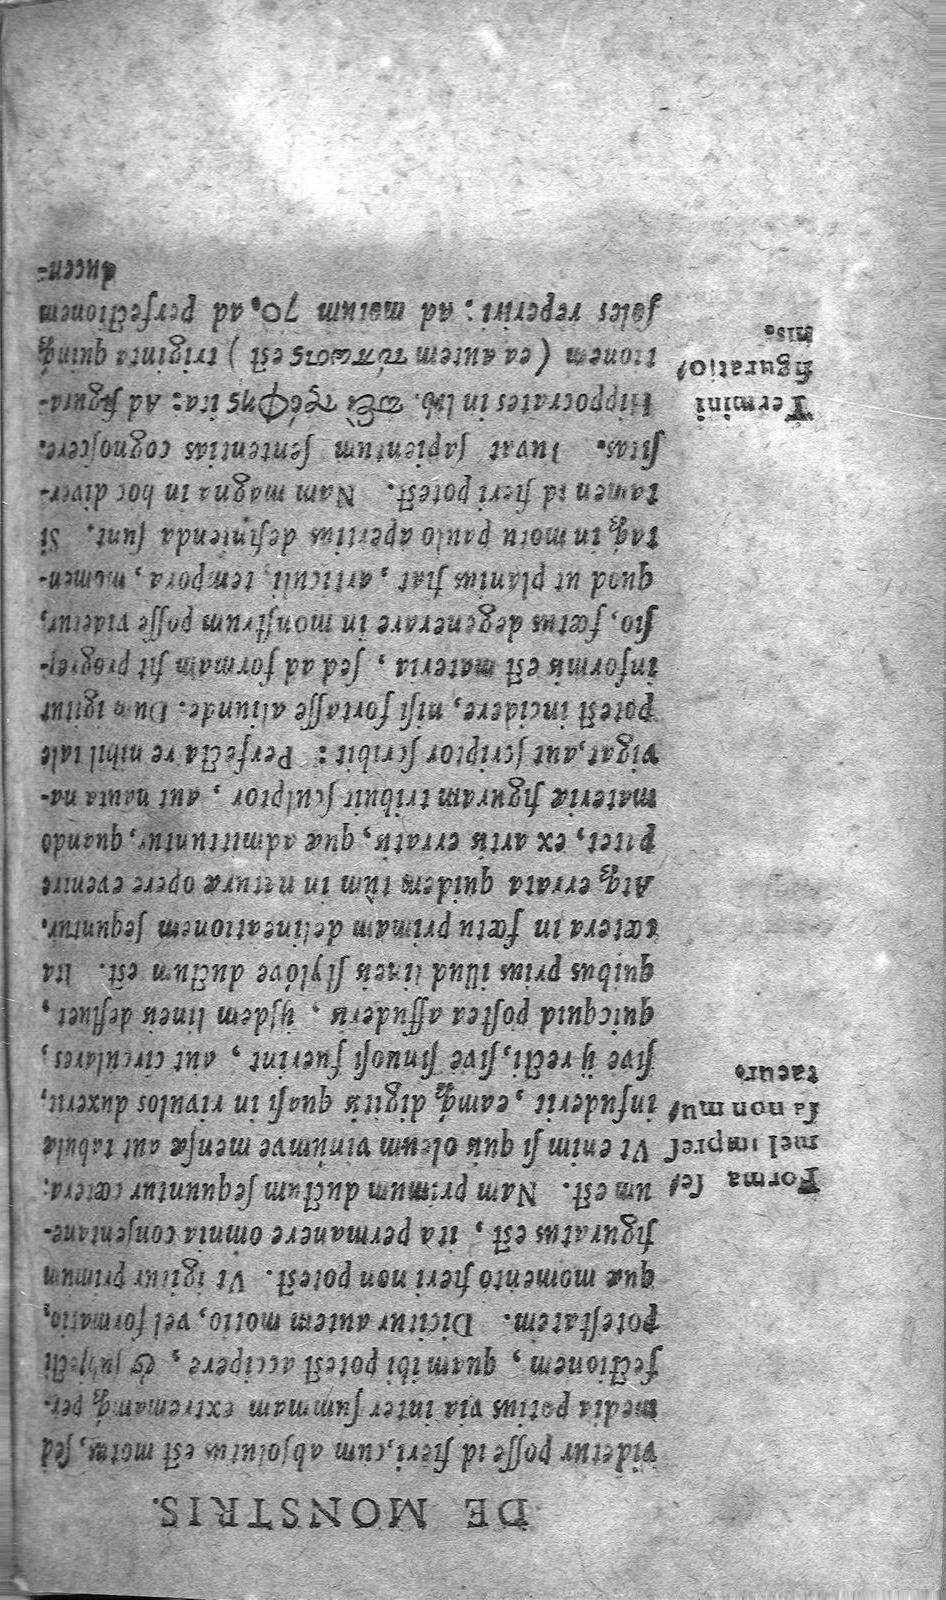 DE MONSTRIS.
videtur posse id fieri, cum absolutus est motus, sed
media potius via inter summam extremamq́ꝫ per-
fectionem, quam ibi potest accipere, & subjecti
potestatem. Dicitur autem motio, vel formatio,
quæ momento fieri non potest. Vt igitur primum
figuratus est, ita permanere omnia consentane-
um est. Nam primum ductum sequuntur cætera:
Vt enim si quis oleum vinúmve mensæ aut tabulæ
infuderit, eamq́ꝫ digitis quasi in rivulos duxerit,
sive ij recti, sive sinuosi fuerint, aut circulares,
quicquid postea affuderis, ijsdem lineis defluet,
quibus prius illud lineis stylóve ductum est. Ita
cætera in fœtu primam delineationem sequntur.
Atqꝫ errata quidem tùm in naturæ opere evenire
ex artis erratis, quæ admittuntur, quando
materiæ figuram tribuit sculptor, aut nauta na-
vigat, aut scriptor scribit: Perfecta re nihil tale
potest incidere, nisi fortasse aliunde: Dum igitur
informis est materia, sed ad formam fit progres-
sio, fœtus degenerare in monstrum posse videtur,
quod ut planius fiat, articuli, tempora, momen-
taq́ꝫ in motu paulo apertius definienda sunt. Si
tamen id fieri potest. Nam magna in hoc diver-
sitas. Iuvat sapientum sententias cognoscere.
Hippocrates in lib. ita: Ad figura-
tionem (ea autem τύπωσις est) triginta quinq́ꝫ
soles reperiri: ad motum 70. ad perfectionem
ducen-
Forma se⸗
mel impres
sa non mu⸗
taeur⸗
Termini
figuratio⸗
nis.